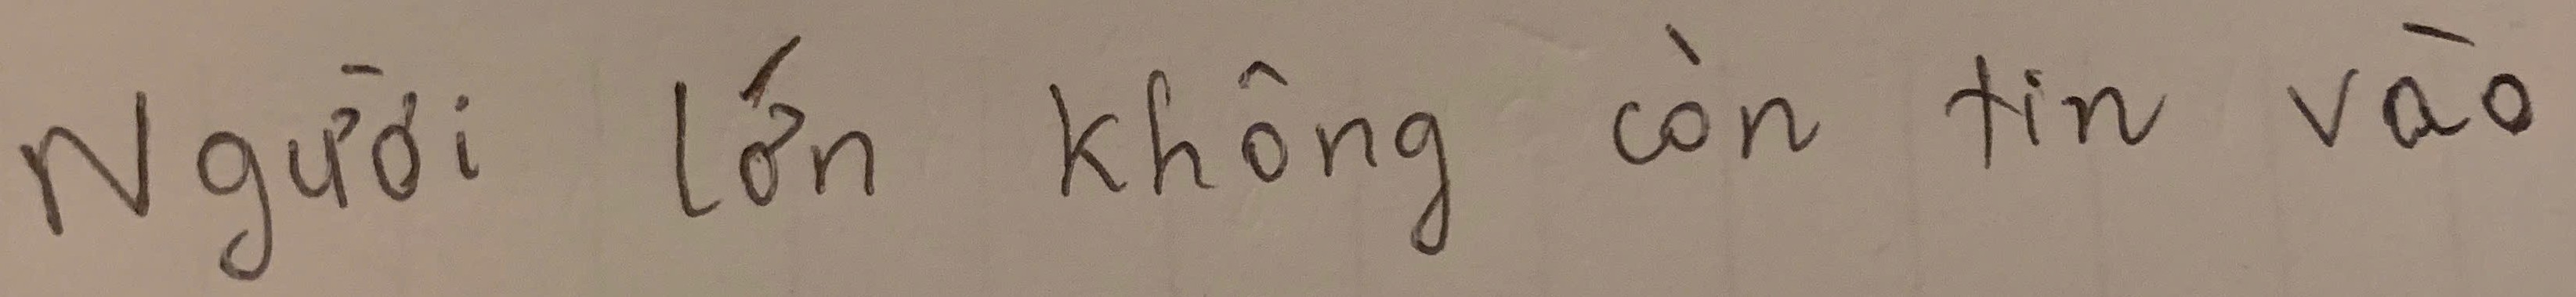 Người lớn không còn tin vào